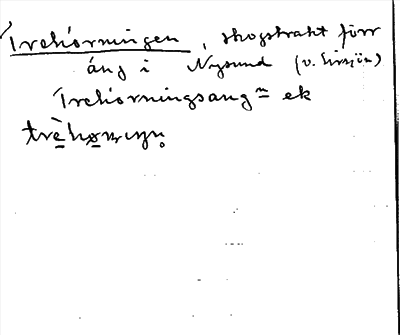 Trehörningen, skogstrakt förr
äng i Nysund (v. Sirsjön)
Trehörningsäng m ek